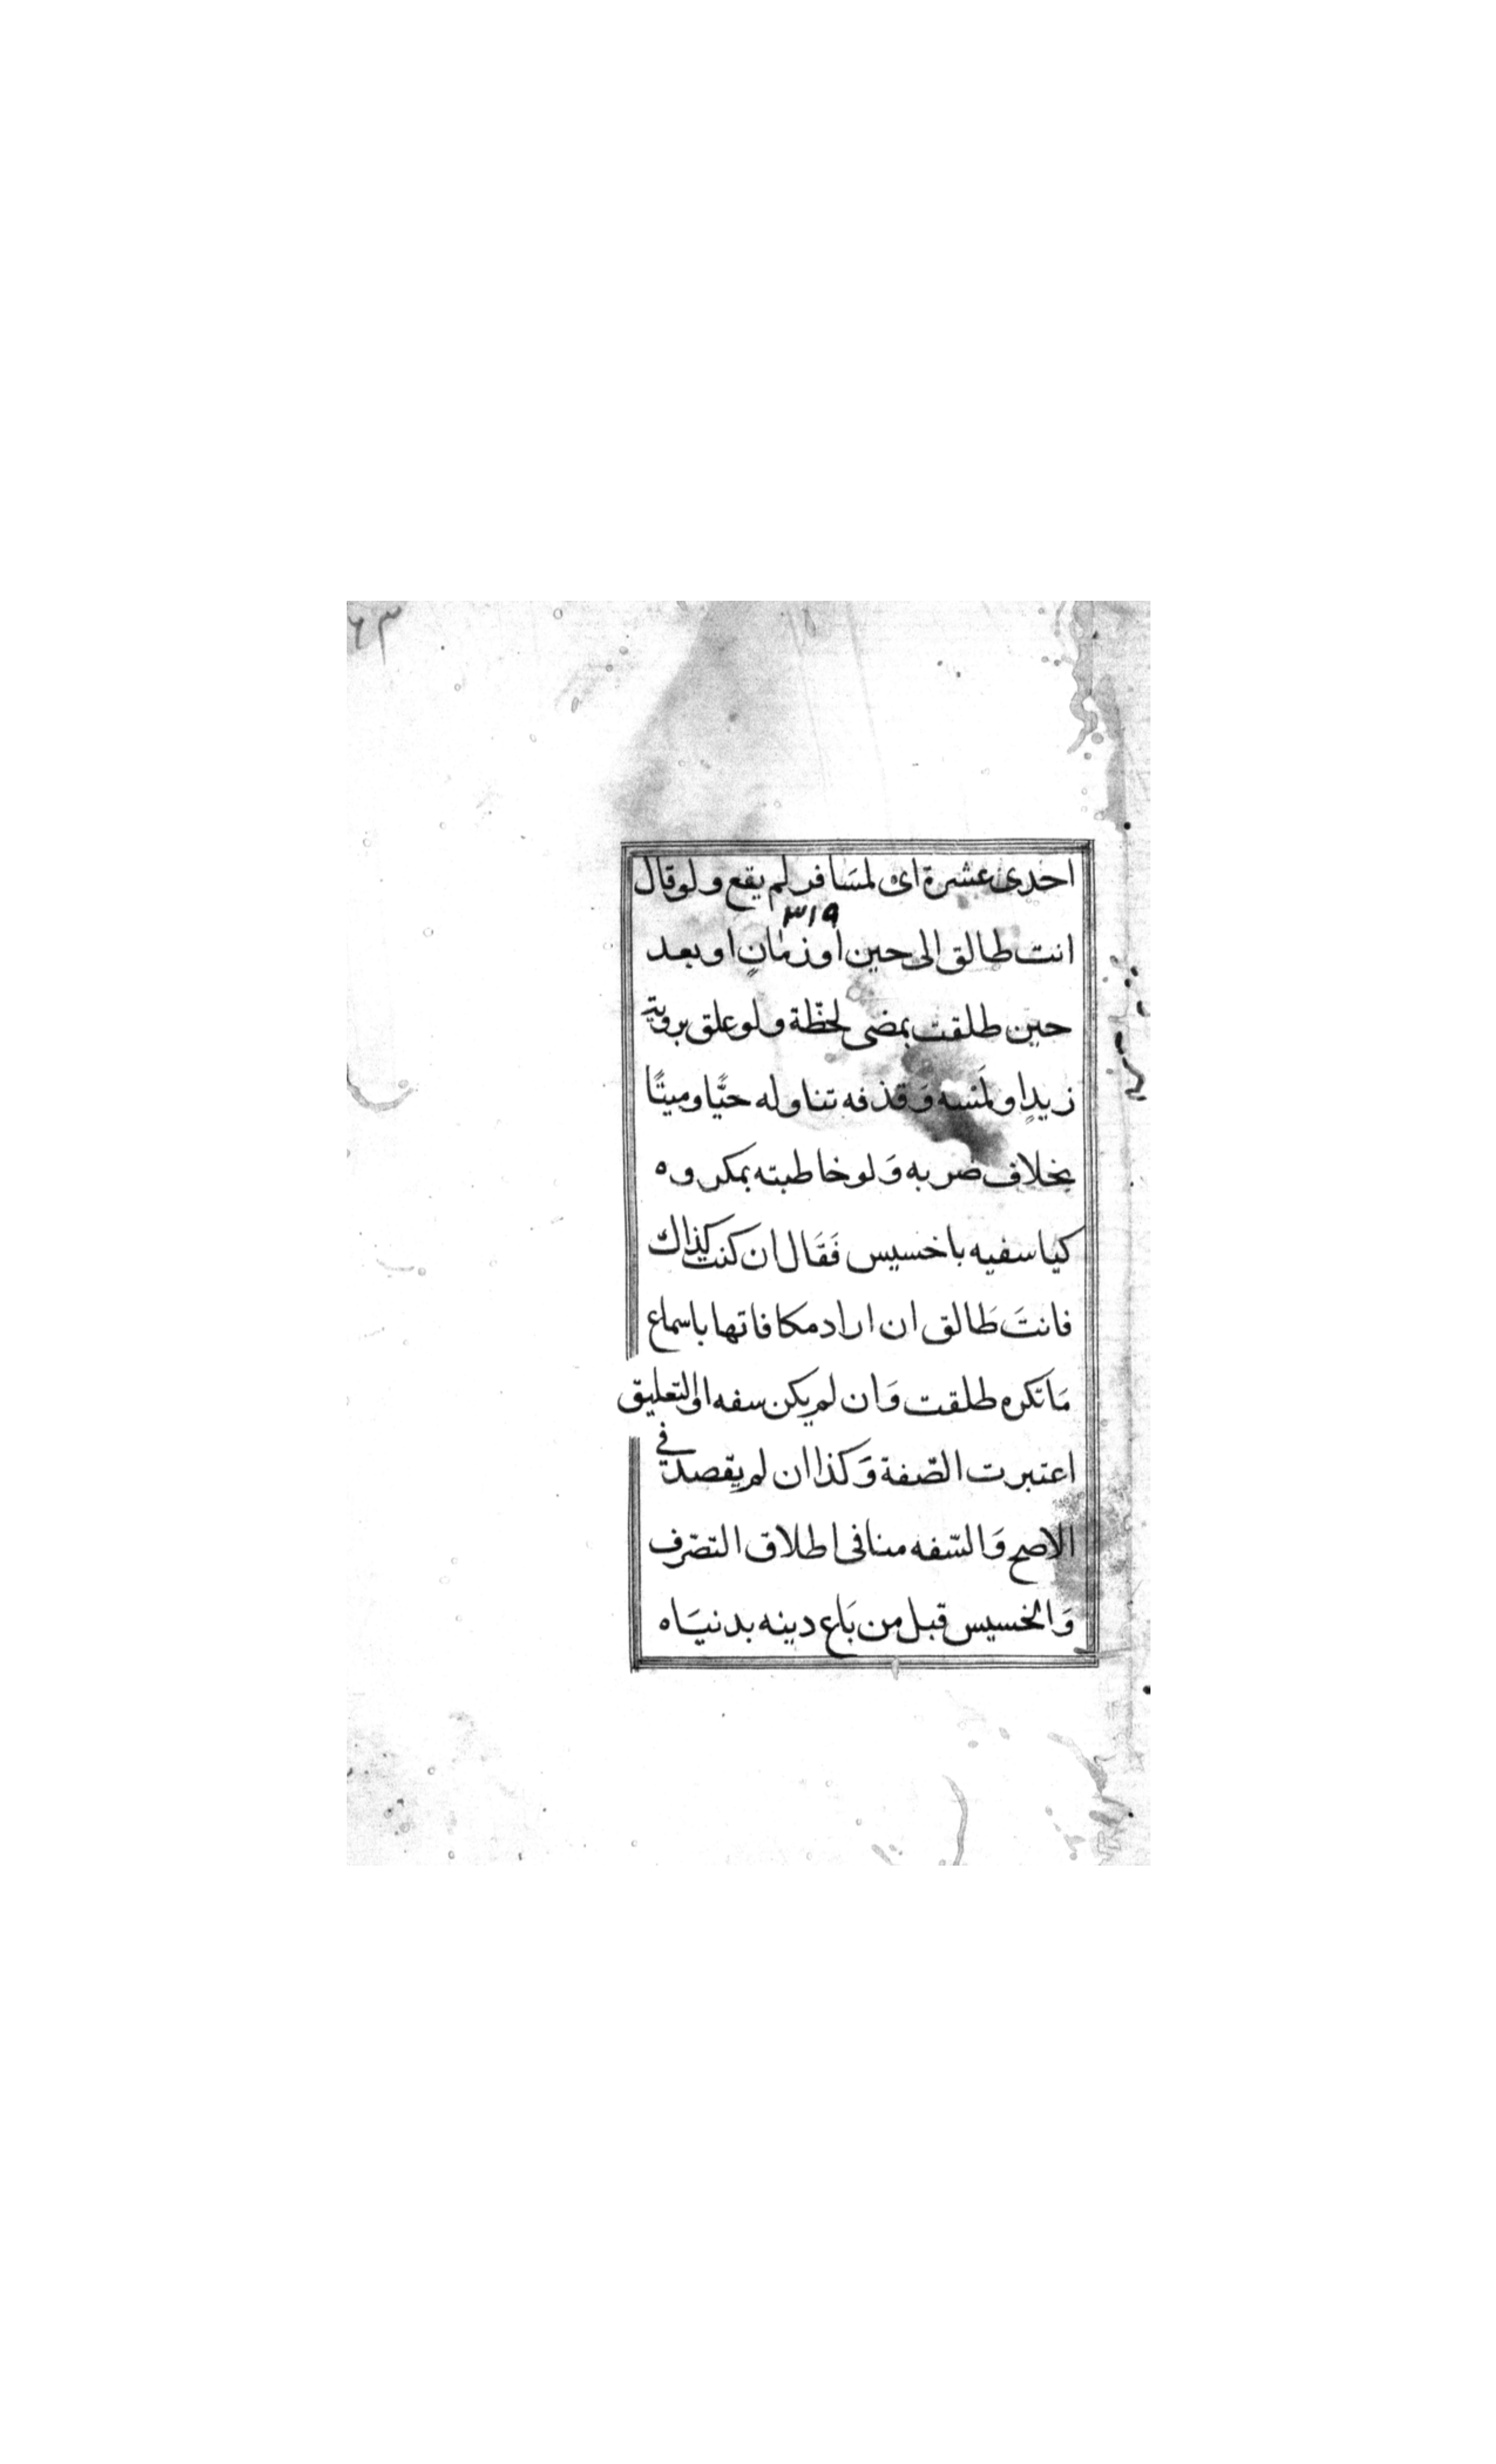 ٦٣
احدى عشرة اى لمسَافر لم يقع ولو قال
٣١٩
انت طالق الى حين او زمانٍ او بعد
حين طلقت بمضى لحظة ولو علق برويته
زيدٍ او لمَسه وَقذفه تناوله حيًّا وميتًا
بخلاف ضربه وَلو خاطبته بمكروه
كيا سفيه يا خسيس فَقَال ان كنت كذاك
فانتَ طَالق ان اراد مكافاتها باسماع
مَا تكره طلقت وَان لم يكن سفه او التعليق
اعتبرت الصّفة وَكذا ان لم يقصد في
الاصح وَالسّفه منافى اطلاق التصّرف
وَالخسيس قيل من بَاع دينه بدنيَاه